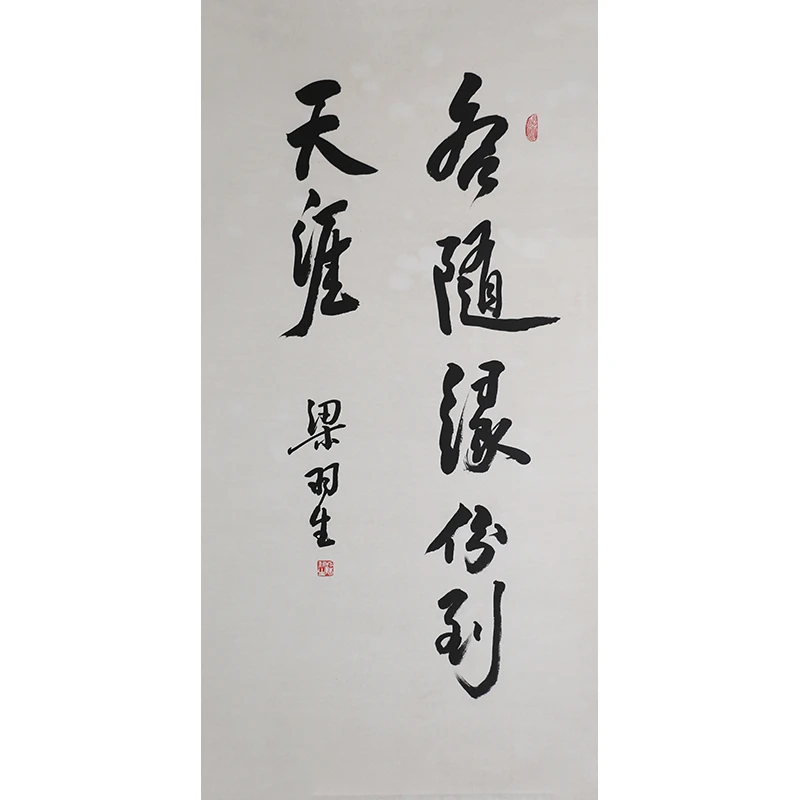 各随缘份到
天涯
梁羽生